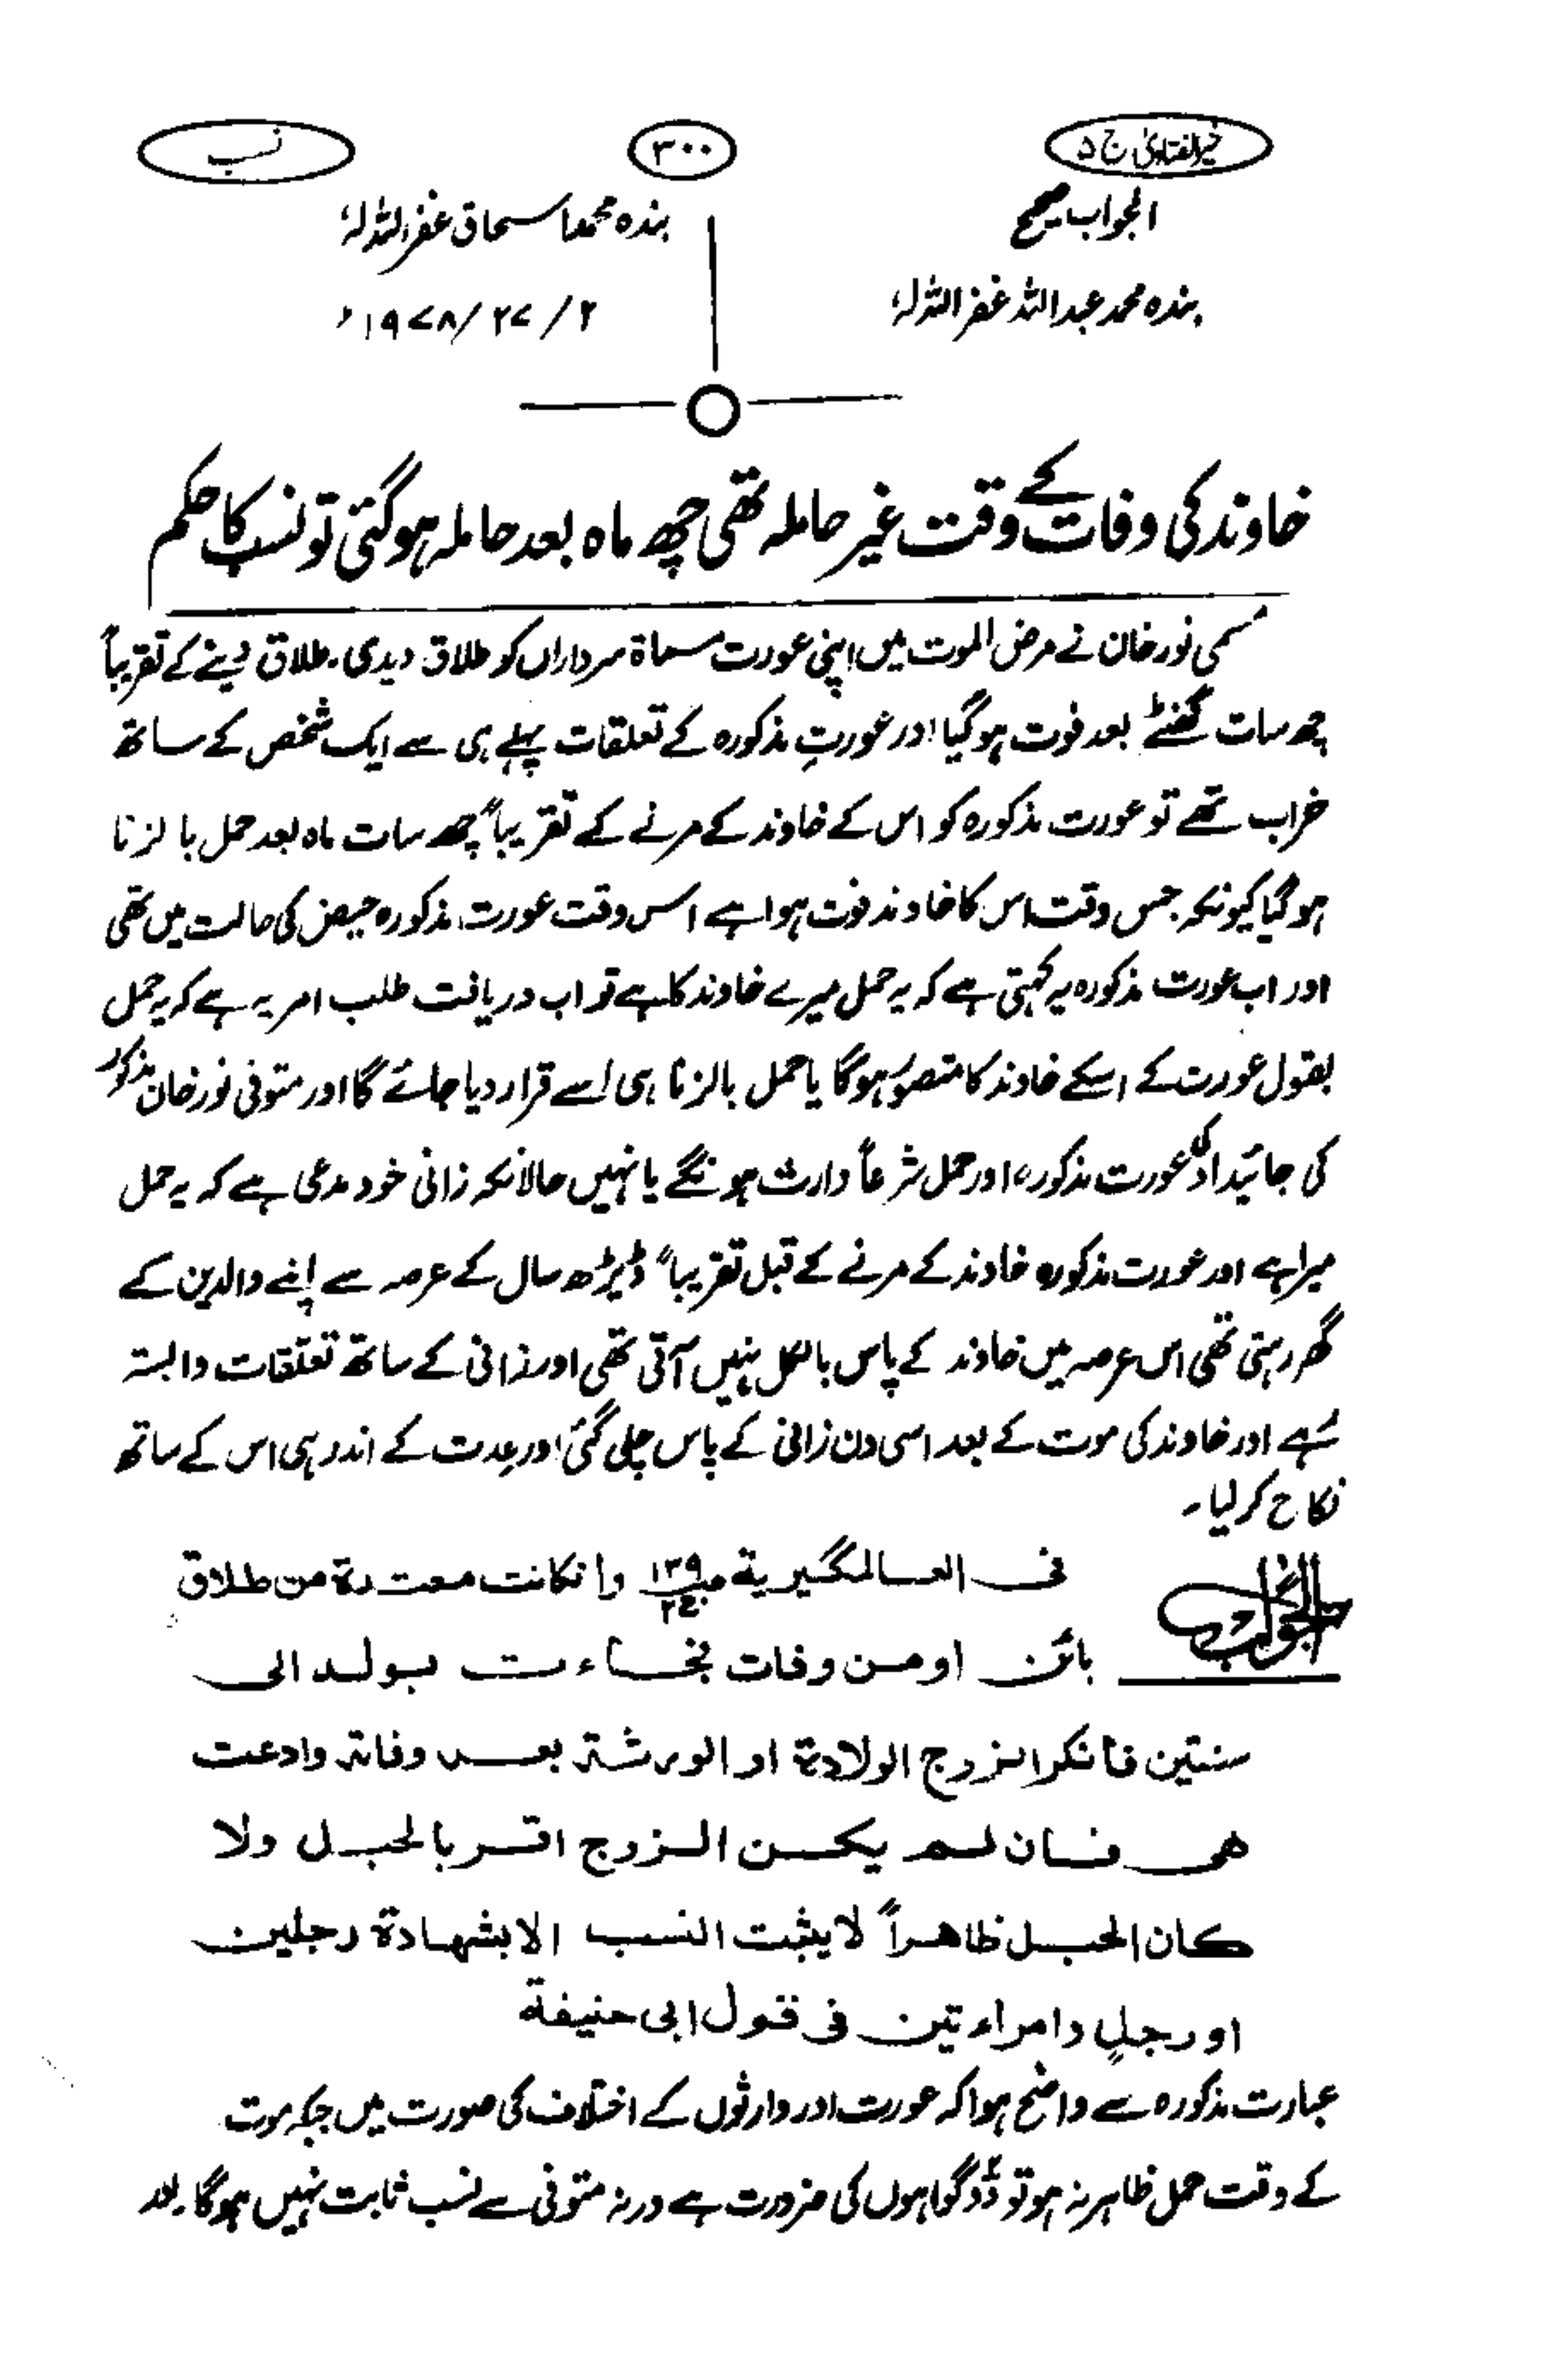 خیر الفتاویٰ ج ۵
۳۰۰
نسب
الجواب صحیح
بندہ محمد اسحاق غفر اللہ لہٗ
بندہ محمد عبداللہ غفر اللہ لہٗ
۲/۲۷/۱۹۷۸ء
خاوند کی وفات کے وقت غیر حاملہ تھی چھ ماہ بعد حاملہ ہوگئی تو نسب کا حکم
مسمی نور خان نے مرض الموت میں اپنی عورت مسماۃ سرداراں کو طلاق دیدی۔ طلاق دینے کے تقریباً
چھ سات گھنٹے بعد فوت ہوگیا اور عورتِ مذکورہ کے تعلقات پہلے ہی سے ایک شخص کے ساتھ
خراب تھے تو عورت مذکورہ کو اس کے خاوند کے مرنے کے تقریباً چھ سات ماہ بعد حمل بالزنا
ہوگیا کیونکہ جس وقت اس کا خاوند فوت ہوا ہے اس وقت عورت مذکورہ حیض کی حالت میں تھی
اور اب عورت مذکورہ یہ کہتی ہے کہ یہ حمل میرے خاوند کا ہے تو اب دریافت طلب امر یہ ہے کہ یہ حمل
بقول عورت کے اسکے خاوند کا متصور ہوگا یا حمل بالزنا ہی اسے قرار دیا جائے گا اور متوفی نور خان مذکور
کی جائیداد کی عورت مذکورہ اور حمل شرعاً وارث ہونگے یا نہیں حالانکہ زانی خود مدعی ہے کہ یہ حمل
میرا ہے اور عورت مذکورہ خاوند کے مرنے کے قبل تقریباً ڈیڑھ سال کے عرصہ سے اپنے والدین کے
گھر رہتی تھی اس عرصہ میں خاوند کے پاس بالکل نہیں آتی تھی اور زانی کے ساتھ تعلقات وابستہ
رہے اور خاوند کی موت کے بعد اسی دن زانی کے پاس چلی گئی اور عدت کے اندر ہی اس کے ساتھ
نکاح کر لیا۔
الجواب
فی العالمگیریة ص۱۳۹ ج۲ وان کانت معتدة من طلاق
بائن او من وفات فجاءت بولد الی
سنتین فانکر الزوج الولادة او الورثة بعد وفاته وادعت
هی فان لم یکن الزوج اقر بالحبل ولا
کان الحبل ظاهراً لا یثبت النسب الا بشهادة رجلین
او رجلٍ وامراءتین فی قول ابی حنیفة
عبارت مذکورہ سے واضح ہوا کہ عورت اور وارثوں کے اختلاف کی صورت میں جبکہ موت
کے وقت حمل ظاہر نہ ہو تو دو گواہوں کی ضرورت ہے ورنہ متوفی سے نسب ثابت نہیں ہوگا۔ بعد